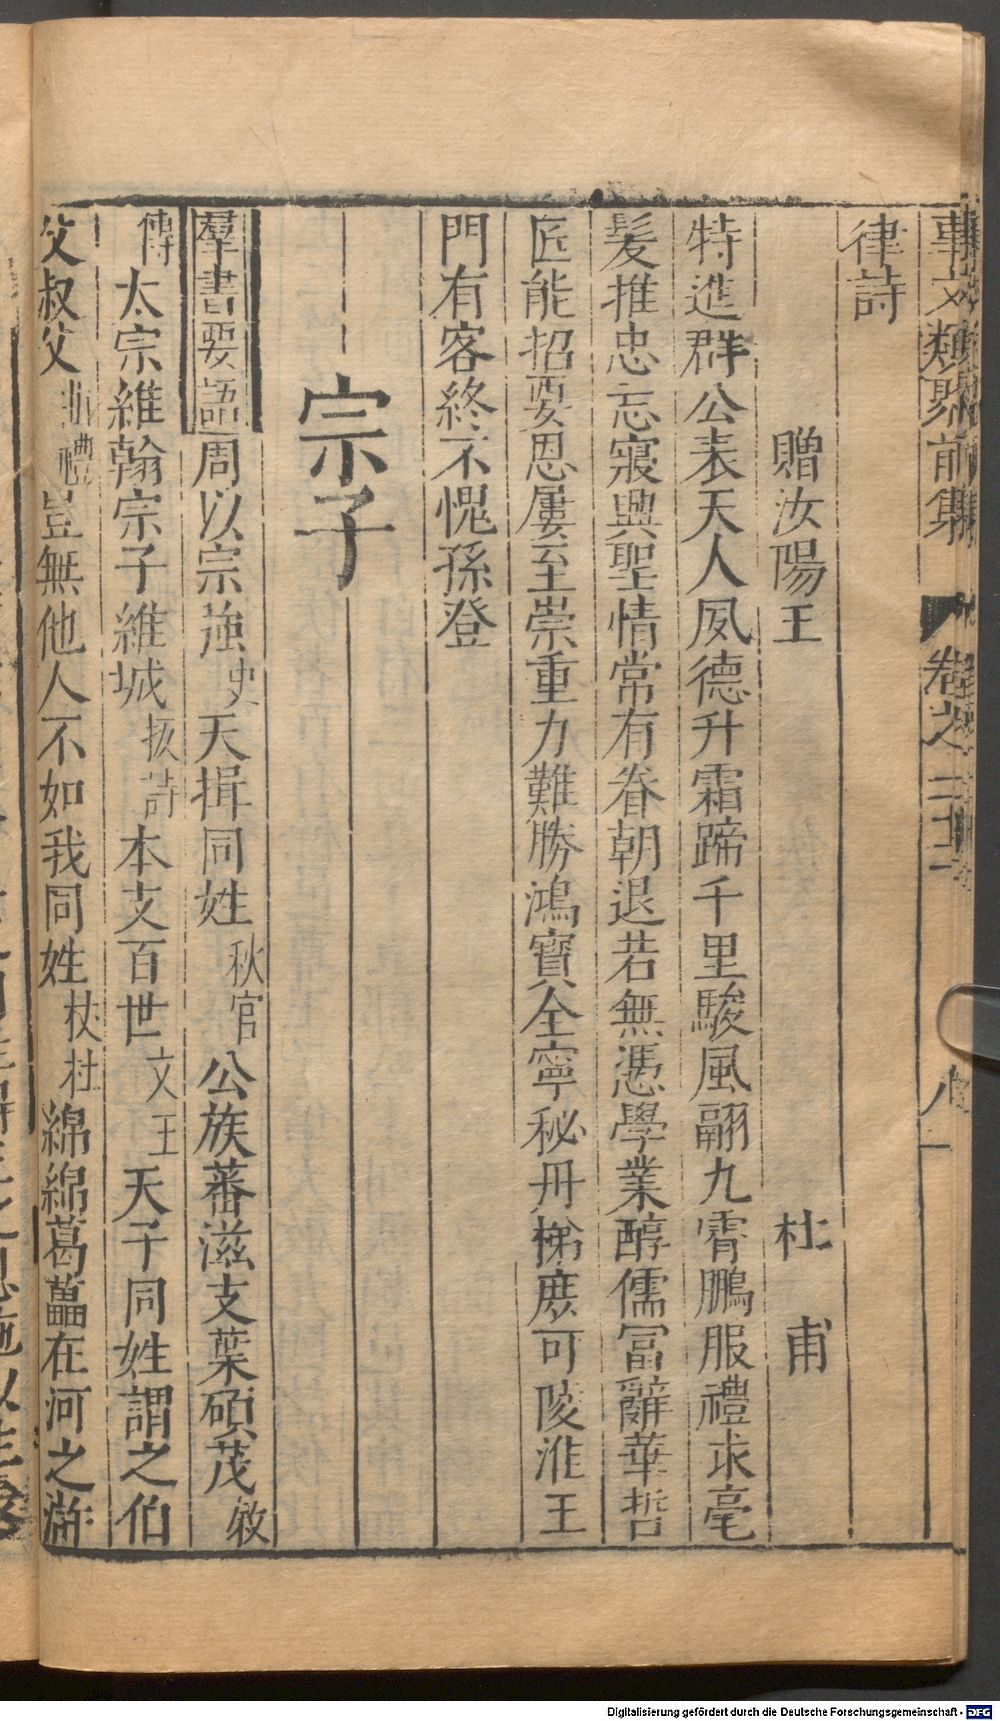 事文類聚前集 卷之二十二 八
律詩
贈汝陽王 杜甫
特進群公表天人夙德升霜蹄千里駿風翮九霄鵬服禮求毫
髮推忠忘寢興聖情常有眷朝退若無憑學業醇儒冨辭華哲
匠能招要恩屢至崇重力難勝鴻寶全寧秘丹梯庶可陵淮王
門有客終不愧孫登
宗子
羣書要語周以宗強史天揖同姓秋官公族蕃滋支葉碩茂敘
傳太宗維翰宗子維城板詩本支百世文王天子同姓謂之伯
父叔父曲禮豈無他人不如我同姓杕杜綿綿葛藟在河之滸
Digitalisierung gefördert durch die Deutsche Forschungsgemeinschaft - DFG